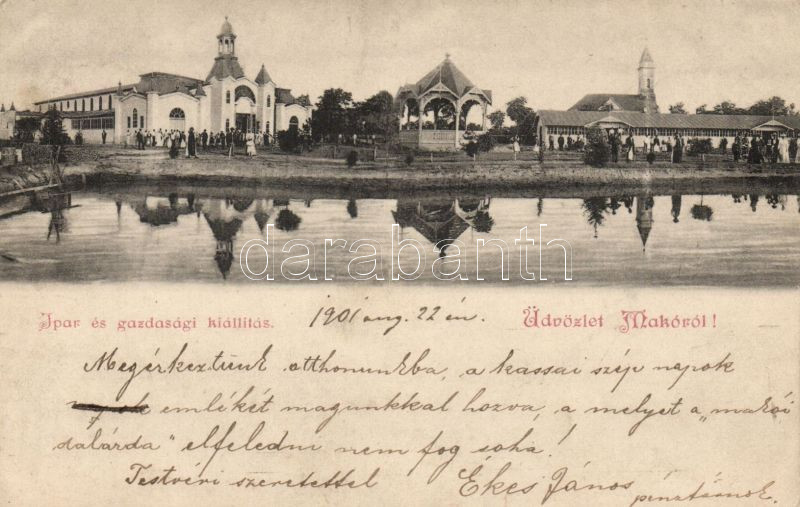 darabanth
Ipar és gazdasági kiállitás. 1901 aug. 22 én. Üdvözlet Makóról!
Megérkeztünk otthonunkba, a kassai szép napok
emlékét magunkkal hozva, a melyet a „makói
dalárda" elfeledni nem fog soha!
Testvéri szeretettel Ékes János
pénztárnok.